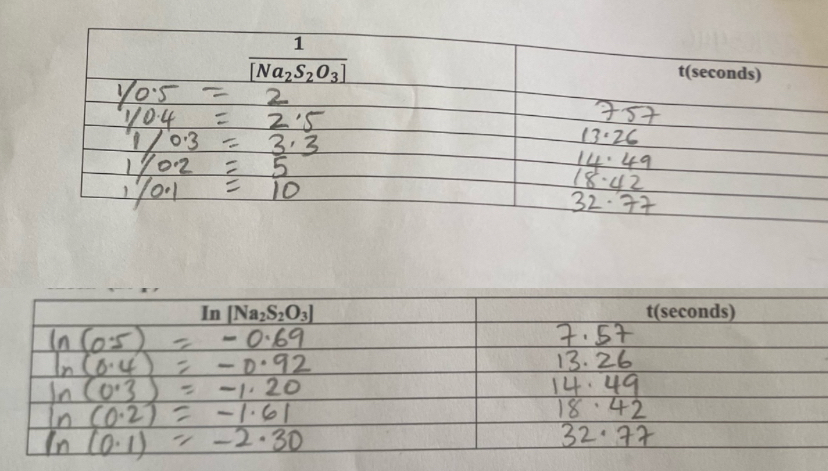 1
[Na₂S₂O₃] t(seconds)
1/0.5 = 2 757
1/0.4 = 2.5 13.26
1/0.3 = 3.3 14.49
1/0.2 = 5 18.42
1/0.1 = 10 32.77
In [Na₂S₂O₃] t(seconds)
ln (0.5) = -0.69 7.57
ln (0.4) = -0.92 13.26
ln (0.3) = -1.20 14.49
ln (0.2) = -1.61 18.42
ln (0.1) = -2.30 32.77